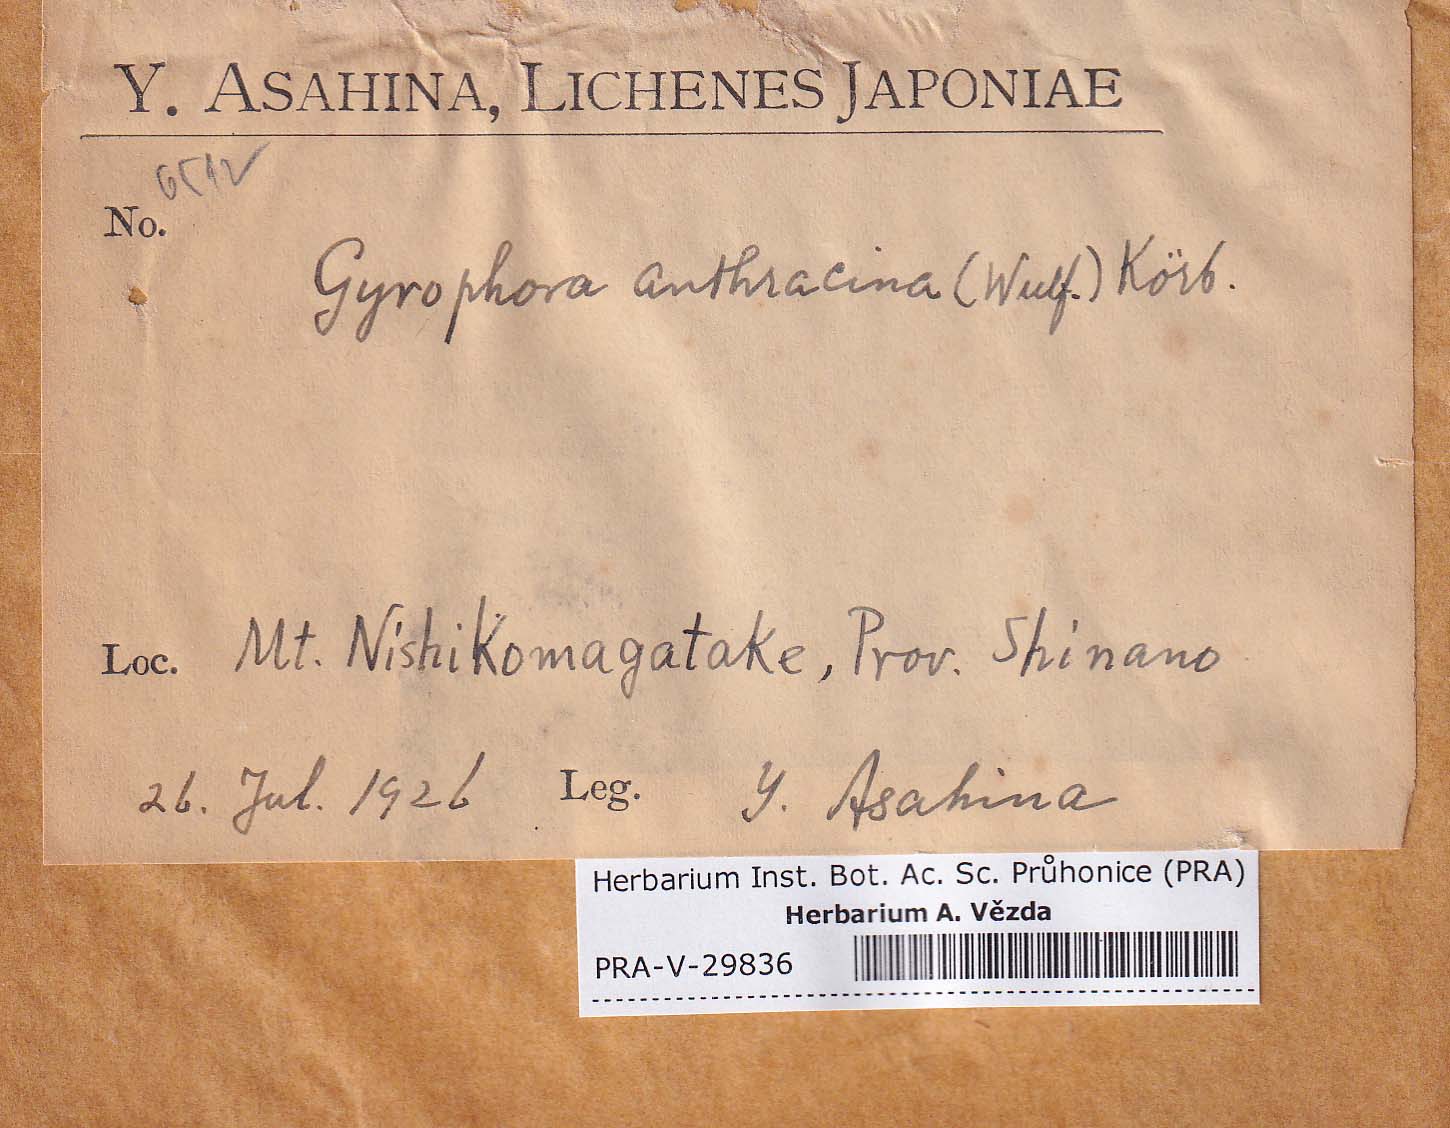 Y. ASAHINA, LICHENES JAPONIAE
No.
Gyrophora anthracina (Wulf.) Körb.
Loc. Mt. Nishikomagatake, Prov. Shinano
26. Jul. 1926 Leg. Y. Asahina
Herbarium Inst. Bot. Ac. Sc. Průhonice (PRA)
Herbarium A. Vězda
PRA-V-29836